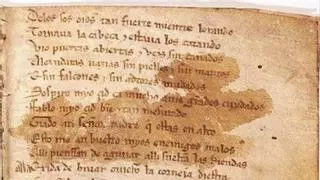 Delos sos oios tan fuerte mientre lorando
Tornava la cabeça y estava los catando
Vio puertas abiertas y vços sin cañados
Alcandaras vazias sin pielles y sin mantos
E sin falcones y sin adtores mudados
Sospiro myo çid ca mucho avie grandes cuydados
Fablo myo çid bien y tan mesurado
Grado ati señor padre que estas en alto
Esto me an buelto myos enemigos malos
Alli pienssan de aguijar alli sueltan las riendas
Exida de bivar ovieron la corneia diestra